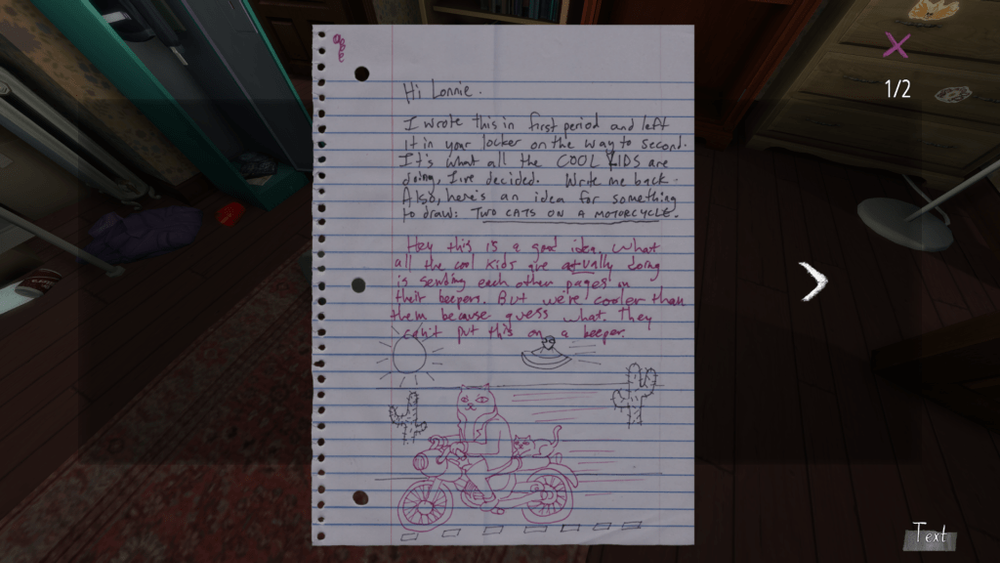 Hi Lonnie.
I wrote this in first period and left
it in your locker on the way to second.
It's what all the COOL KIDS are
doing, I've decided. Write me back.
Also, here's an idea for something
to draw: TWO CATS ON A MOTORCYCLE.
Hey this is a good idea. What
all the cool kids are actually doing
is sending each other pages on
their beepers. But we're cooler than
them because guess what. They
can't put this on a beeper.
1/2
Text